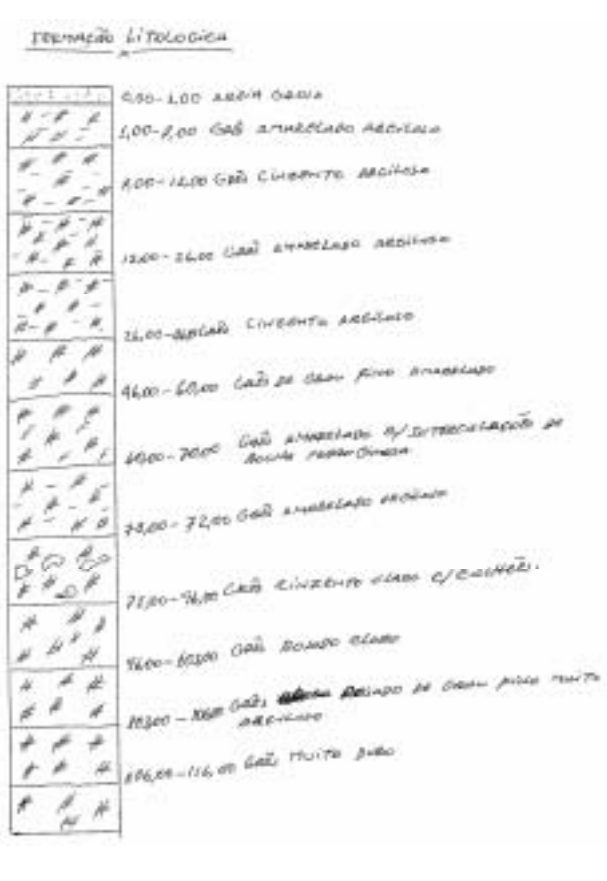 FORMAÇÃO LITOLOGICA
0,00-1,00 AREIA
1,00-8,00 GRÊS AMARELADO ARGILOSO
8,00-12,00 GRÊS CINZENTO ARGILOSO
12,00-26,00 GRÊS AMARELADO ARGILOSO
26,00- GRÊS CINZENTO ARGILOSO
46,00-60,00 GRÊS DE GRAU FINO AMARELADO
60,00-70,00 GRÊS AMARELADO C/ INTERCALAÇÃO DE
ROCHA FERRUGINOSA
70,00-72,00 GRÊS AMARELADO ARGILOSO
72,00-96,00 GRÊS CINZENTO CLARO C/
96,00-103,00 GRÊS ROSADO CLARO
103,00-106,00 GRÊS ROSADO DE GRAU FINO MUITO
ARGILOSO
106,00-116,00 GRÊS MUITO DURO